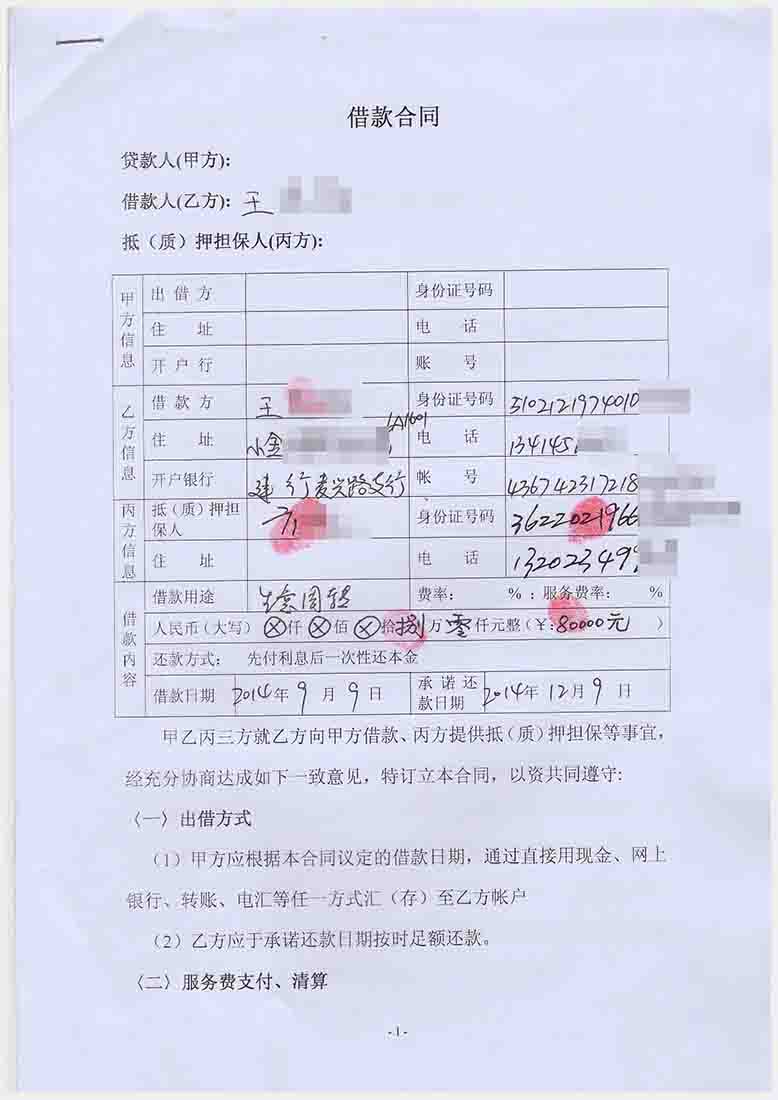 借款合同
贷款人(甲方):
借款人(乙方): 王
抵（质）押担保人(丙方):
甲方信息
出 借 方 身份证号码
住 址 电 话
开 户 行 账 号
乙方信息
借 款 方 王 身份证号码 5102121974010
住 址 小金 1A1601 电 话 134145
开户银行 建行麦兴路支行 帐 号 436742317218
丙方信息
抵（质）押担保人 身份证号码 3622021966
住 址 电 话 132023499
借款内容
借款用途 生意周转 费率： %；服务费率： %
人民币（大写）ⓧ仟ⓧ佰ⓧ拾捌万零仟元整（¥：80000元 ）
还款方式： 先付利息后一次性还本金
借款日期 2014年 9 月 9 日 承诺还款日期 2014年 12月 9 日
甲乙丙三方就乙方向甲方借款、丙方提供抵（质）押担保等事宜，
经充分协商达成如下一致意见，特订立本合同，以资共同遵守:
〈一〉出借方式
（1）甲方应根据本合同议定的借款日期，通过直接用现金、网上
银行、转账、电汇等任一方式汇（存）至乙方帐户
（2）乙方应于承诺还款日期按时足额还款。
〈二〉服务费支付、清算
- 1 -